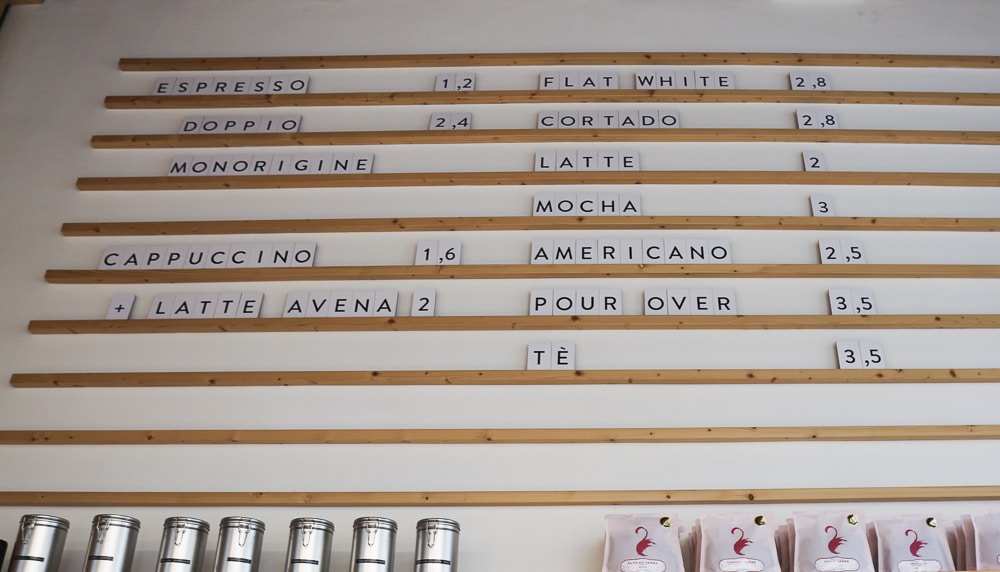 ESPRESSO 1,2
DOPPIO 2,4
MONORIGINE
CAPPUCCINO 1,6
+ LATTE AVENA 2
FLAT WHITE 2,8
CORTADO 2,8
LATTE 2
MOCHA 3
AMERICANO 2,5
POUR OVER 3,5
TÈ 3,5